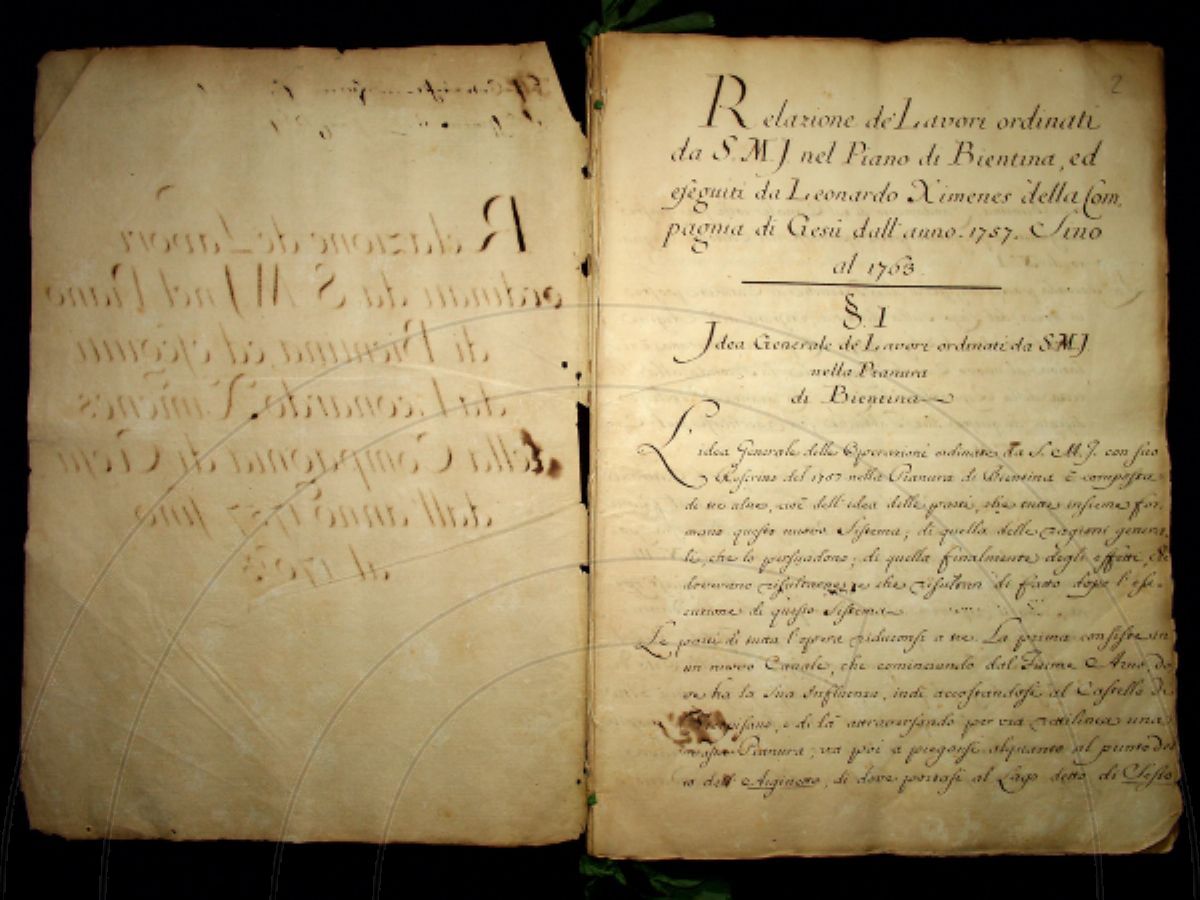 2
Relazione de Lavori ordinati
da S. M. J. nel Piano di Bientina, ed
eseguiti da Leonardo Ximenes della Com,
pagnia di Gesù dall'anno. 1757. Sino
al 1763.
§. I
Idea Generale de Lavori ordinati da S. M. J.
nella Pianura
di Bientina
L'idea Generale delle Operazioni ordinate da S. M. J. con suo
Rescritto del 1757 nella Pianura di Bientina è composta
di tre altre, cioè dell'idea delle parti, che tutte insieme for-
mano questo nuovo Sistema; di quella delle ragioni genera-
li, che lo persuadono; di quella finalmente degli effetti, che
dovevano risultarne, e che risultan di fatto dopo l'ese-
cuzione di questo Sistema
Le parti di tutta l'opera riduconsi a tre. La prima consiste in
un nuovo Canale, che cominciando dal Fiume Arno, do
ve ha la sua Influenza, indi accostandosi al Castello di
e di là attraversando per via rettilinea una
vasta Pianura, va poi a piegarsi alquanto al punto det
to dell'Arginetto, di dove portasi al Lago detto di Sesto
Relazione de Lavori
ordinati da S. M. J. nel Piano
di Bientina, ed eseguiti
da Leonardo Ximenes
della Compagnia di Gesù
dall'anno 1757 sino
al 1763